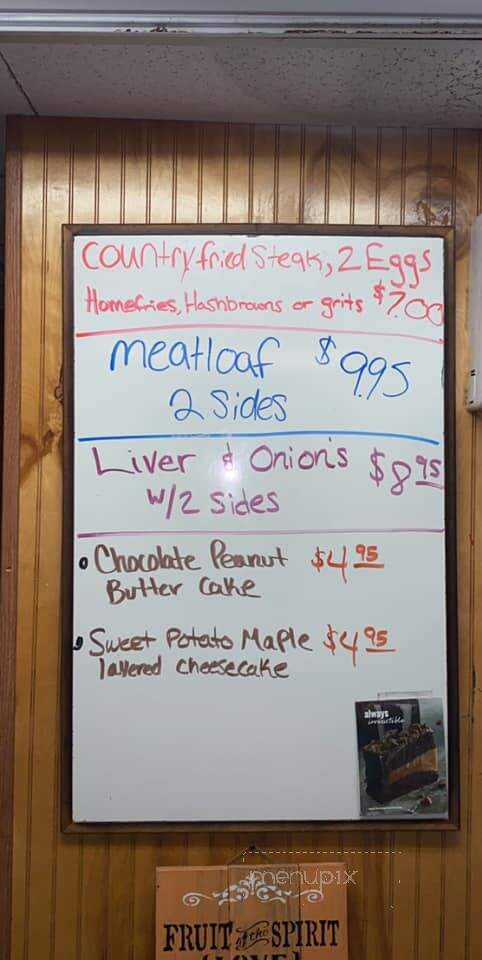 Country fried Steak, 2 Eggs
Homefries, Hashbrowns or grits $7.00
meatloaf $9.95
2 Sides
Liver & Onions $8.95
w/2 sides
• Chocolate Peanut $4.95
Butter Cake
• Sweet Potato Maple $4.95
layered cheesecake
always
irresistible
menupix
FRUIT of the SPIRIT
LOVE